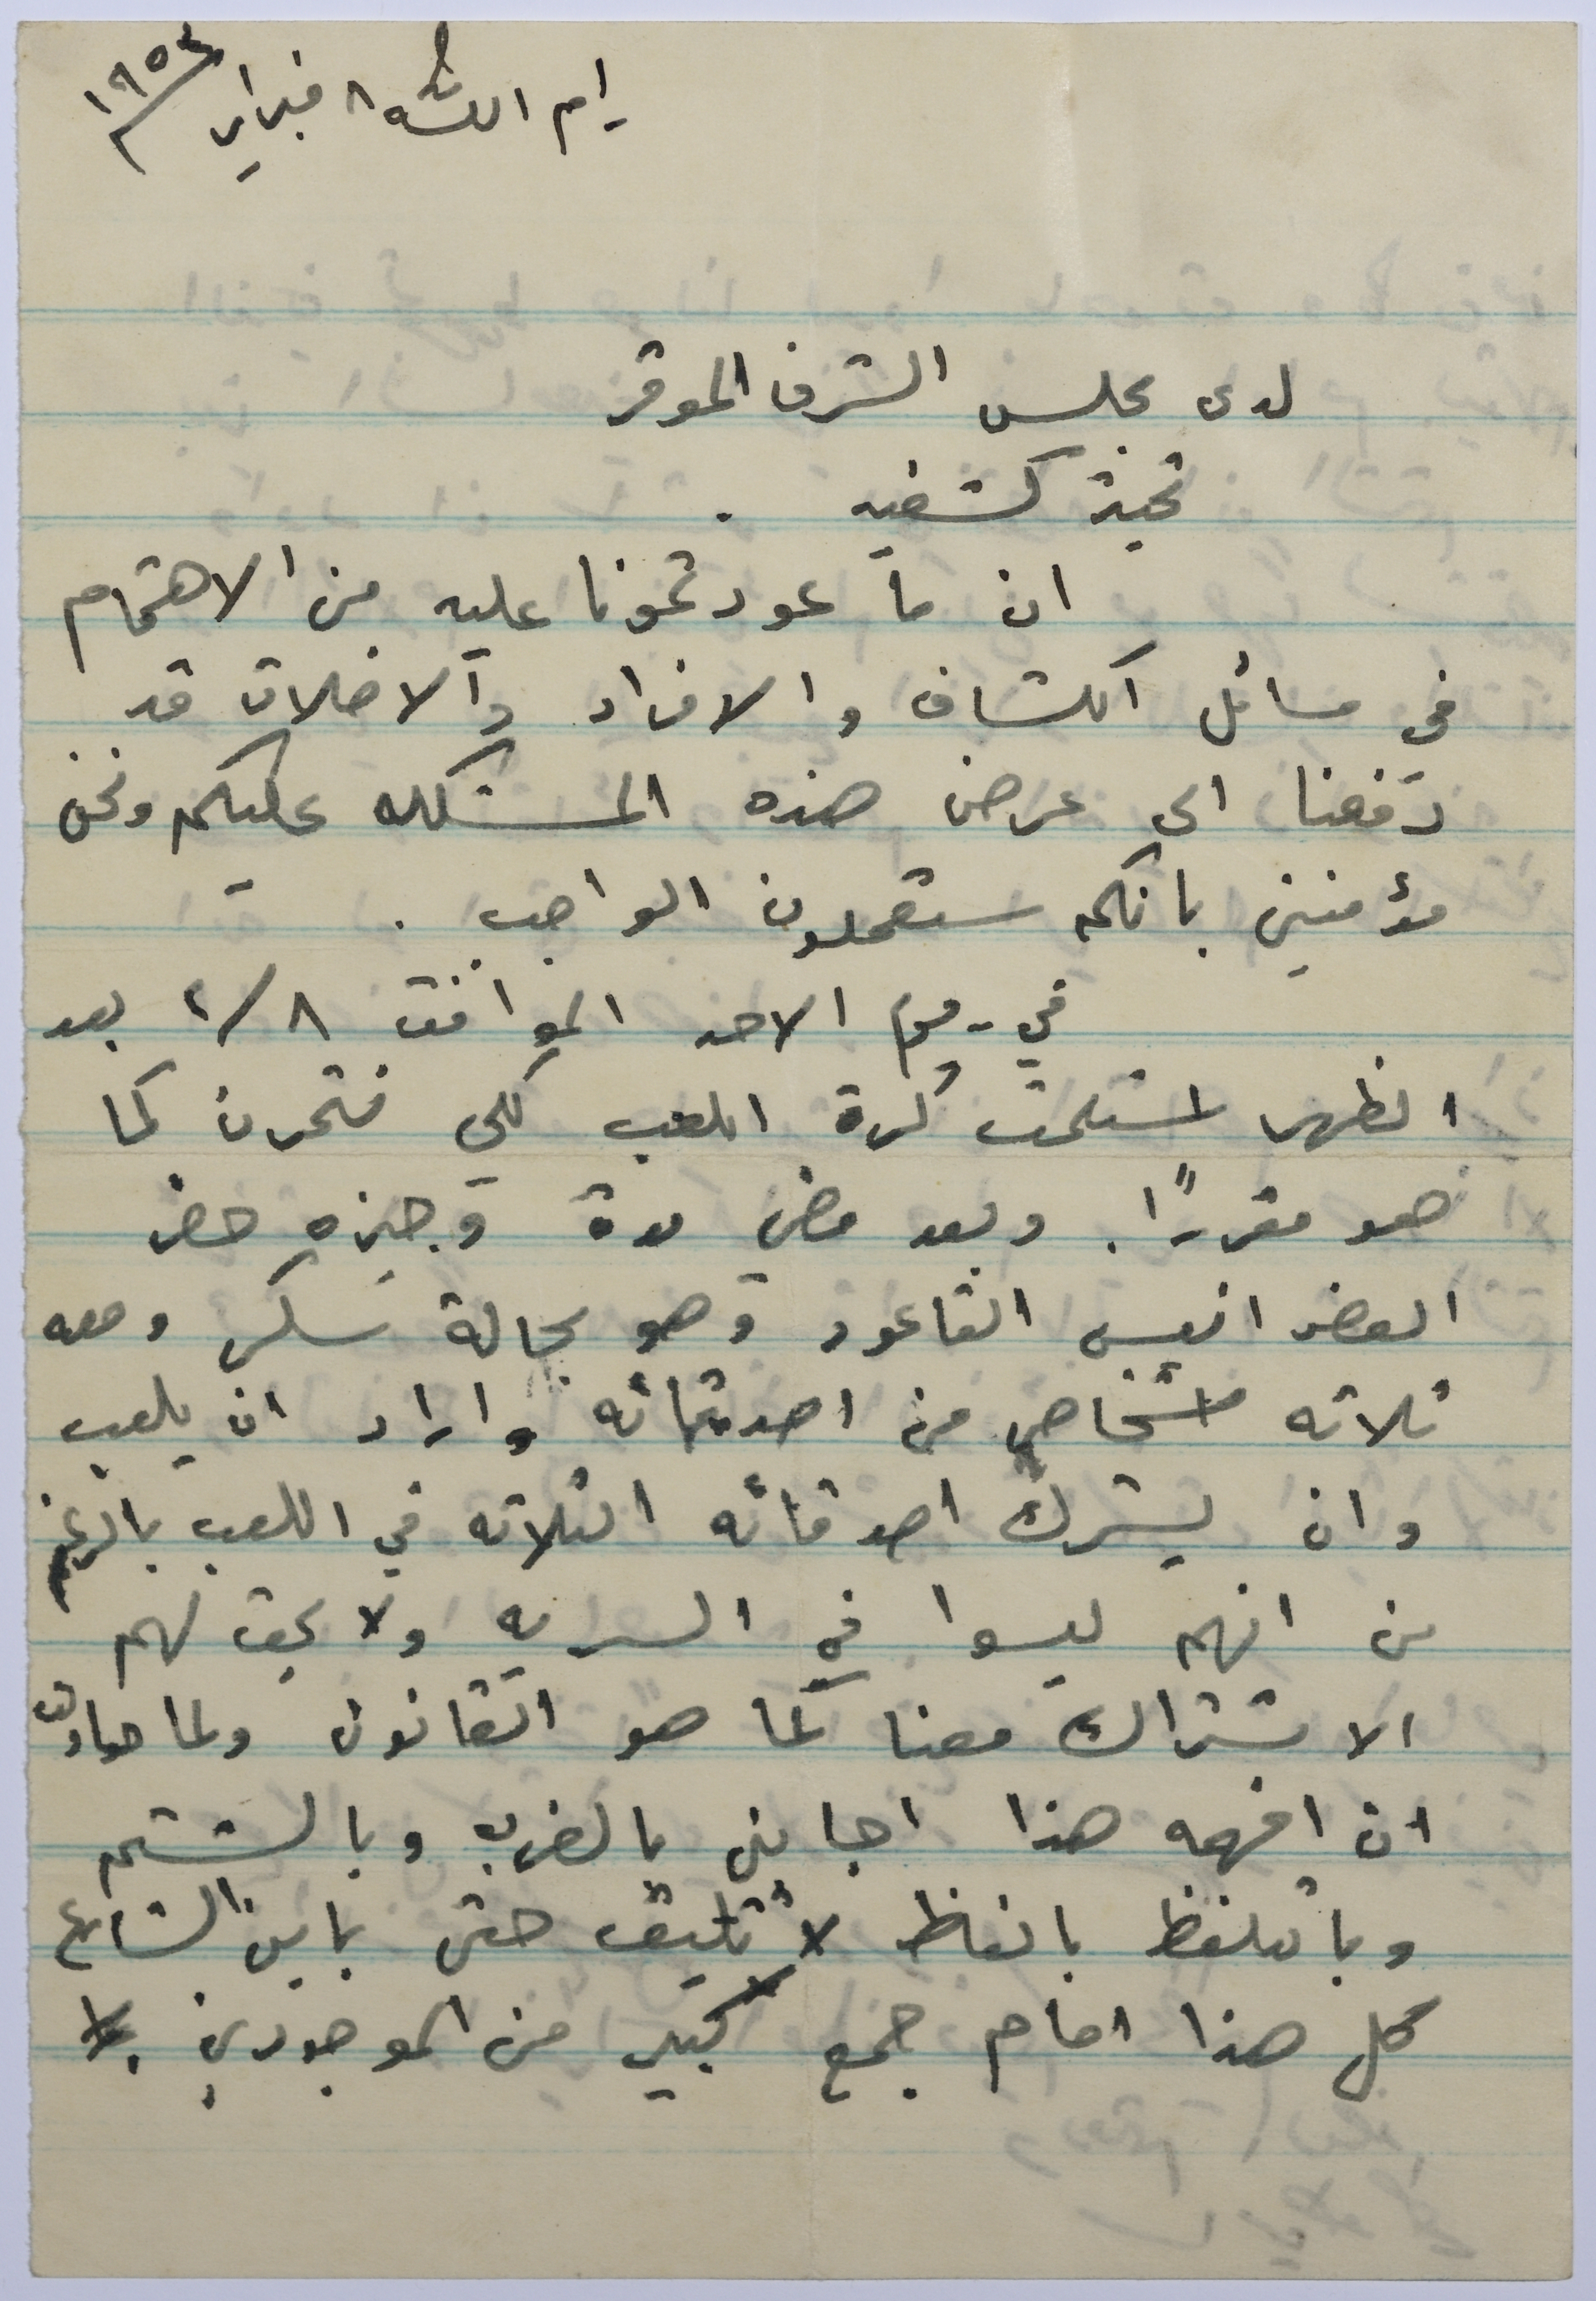 رام الله ٨ فبراير ١٩٥٤
لدى مجلس الشرف الموقر
تحية كشفيه .
ان ما عودتمونا عليه من الاهتمام
في مسائل الكشاف والافراد والاخلاق قد
دفعنا الى عرض هذه المشكله عليكم ونحن
مؤمنين بانكم ستعملون الواجب .
في يوم الاحد الموافق ٢/٨ بعد
الظهر استلمت كرة اللعب لكي نتمرن كما
هو مقررًا . وبعد مضي مدة وجيزه حضر
العضو انيس القاعود وهو بحالة سكر ومعه
ثلاثه اشخاص من اصدقائه واراد ان يلعب
وان يشرك اصدقائه الثلاثه في اللعب بالرغم
من انهم ليسوا في السريه ولا يحق لهم
الاشتراك معنا كما هو القانون ولما حاولت
ان افهمه هذا اجابني بالضرب وبالشتم
وبالتلفظ بالفاظ لا تليق حتى بابن الشارع
كل هذا امام جمع كبير من الموجودين .